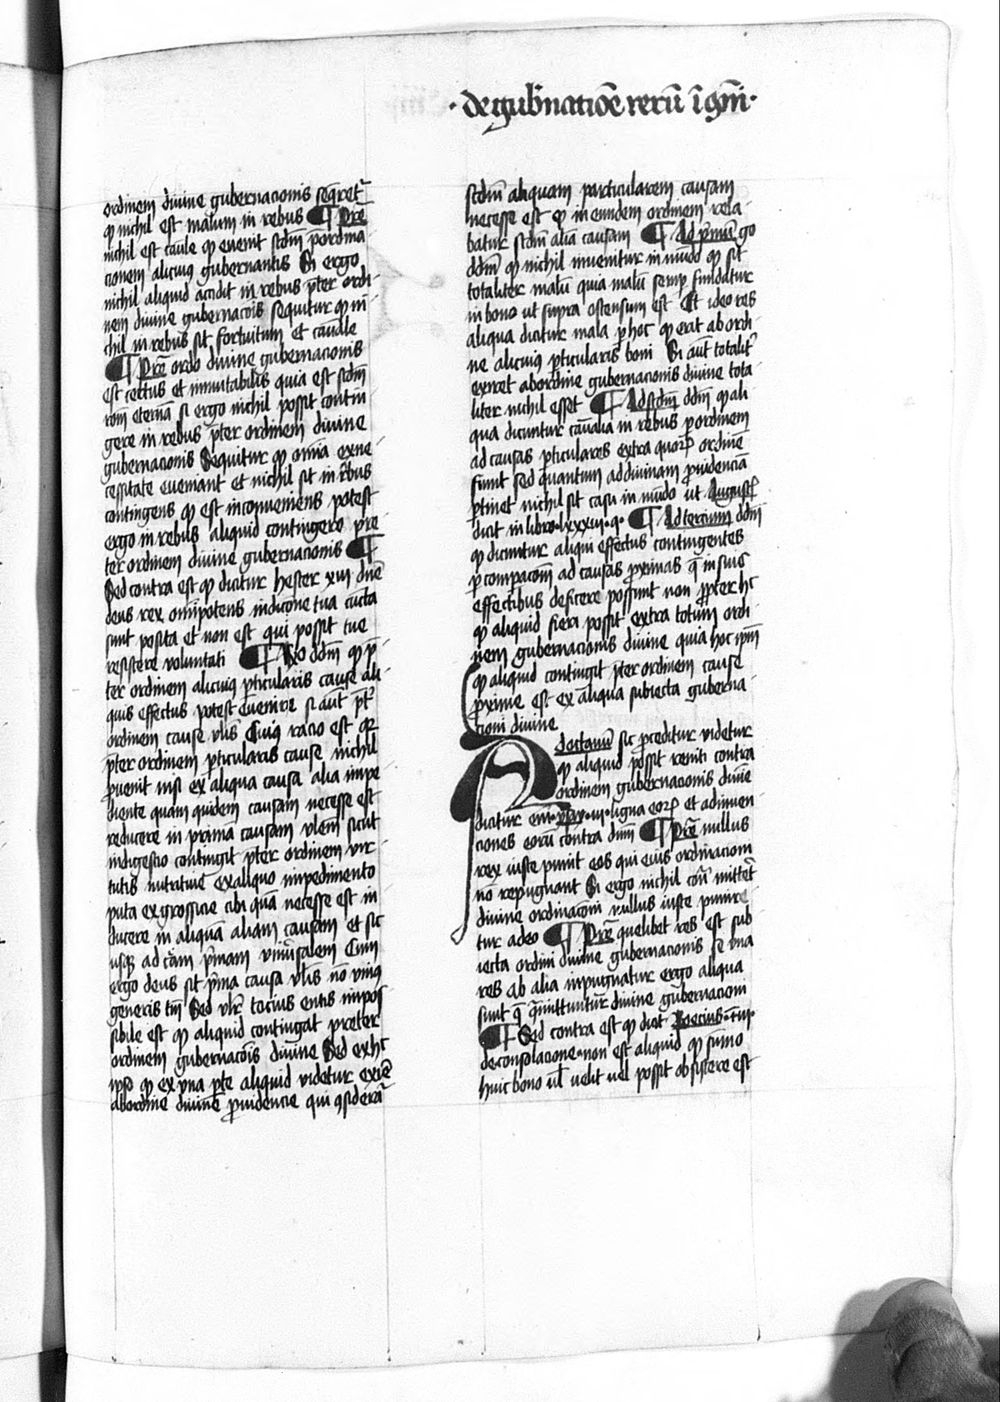 · de gub̾natiōe rerū ī gn̄i ·
ordinem divine gubernacionis seq̄ret᷑
q̛ nichil est malum in rebus ¶ Pre̅
nichil est casule q̛ evenit scdm̄ p̄ordina
cionem alicuiꝯ gubernantis Si ergo
nichil aliquid accidit in rebus p̄ter ordi
nem divine gubernac̄ois sequitur q̛ ni
chil in rebus sit fortuitum et casuale
¶ Pre̅ ordo divine gubernacionis
est certus et inmutabilis quia est scdm̄
rōm eternā si ergo nichil possit contin
gere in rebus p̄ter ordinem divine
gubernacionis Sequitur q̛ omīa ex ne
cessitate eveniant et nichil sit in r̄bus
contingens q̛ est inconveniens potest
ergo in rebus aliquid contingere pre
ter ordinem divine gubernacionis ¶
Sed contra est q̛ dicitur hester xiij dn̄e
deus rex om̄ipotens in dicōne tua cūcta
sunt posita et non est qui possit tue
resistere voluntati ¶ Rō ddm̄ q̛ p̄
ter ordinem alicuiꝯ p̲ticularis cause ali
quis effectus potest evenire si aut̄ p̄t᷑
ordinem cause vl̄is Cuiꝯ racio est qr
p̄ter ordinem p̲ticularis cause nichil
p̲venit nisi ex aliqua causa alia impe
diente quam quidem causam necesse est
reducere in primā causam vl̄em sicut
indigestio contingit p̄ter ordinem vir
tutis nutritive ex aliquo impedimento
puta ex grossicie cibi quā necesse est in
ducere in aliquā aliam causam et sic
usqꝫ ad cām p̄mam univ̾salem Cum
ergo deus sit p̄ma causa vl̄is nō uniꝯ
generis tm̄ Sed vl̄r tocius entis impos
sibile est q̛ aliquid contingat preter
ordinem gubernac̄ois divine Sed ex hͦ
ipso q̛ ex una p̲te aliquid videtur exir̄e
ab ordine divine p̲videncie qui ꝯsiderā
scdm̄ aliquam particularem causam
necesse est q̛ in eundem ordinem rela
batur scdm̄ aliā causam ¶ Ad p̄mū go
ddm̄ q̛ nichil invenitur in mūdo q̛ sit
totaliter malū quia malū semp̲ fundatur
in bono ut supra ostensum est Et ideo res
aliqua dicitur mala p̲ hoc q̛ exit ab ordi
ne alicuiꝯ p̲ticularis boni Si aut̄ totalit᷑
exiret ab ordine gubernacionis divine tota
liter nichil esset ¶ Ad scdm̄ ddm̄ q̛ ali
qua dicuntur casualia in rebus p̲ ordinem
ad causas p̲ticulares extra quoꝝ ordinē
fiunt sed quantum ad divinam p̲videnciā
p̲tinet nichil fit casu in mūdo ut Augustꝯ
dicit in libro · lxxxiij · q · ¶ Ad tercium ddm̄
q̛ dicuntur aliqui effectus contingentes
p̲ compac̄oni ad causas p̲ximas q̄ in suis
effectibus deficere possunt non p̲pter hͦ
q̛ aliquid fieri possit extra totum ordi
nem gubernacionis divine quia hoc ip̄m
q̛ aliquid contingit p̄ter ordinem cause
p̲xime est ex aliqua subiecta guberna
cioni divine
Ad octavū sic p̲ceditur videtur
q̛ aliquid possit reniti contra
ordinem gubernacionis divīe
dicitur eni̅ · ysay · iij · ligua eoꝝ et adinven
ciones eorū contra dnm̄ ¶ Pre̅ nullus
rex iuste punit eos qui eius ordinacioni
nō repugnant Si ergo nichil cont̄ mittet᷑
divine ordinac̄oni nullus iuste punire
tur a deo ¶ Pre̅ quelibet res est sub
iecta ordini divine gubernacionis se una
res ab alia inpugnatur ergo aliqua
sunt q̄ q̄mittuntur divine gubernacioni
¶ Sed contra est q̛ dicit Boecius · in iij ·
de consolacione · non est aliquid q̛ sūmo
huic bono ul̄ velit vel possit obsistere est